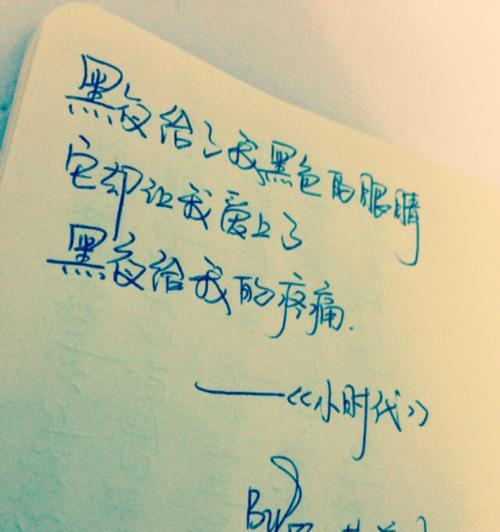 黑夜给了我黑色的眼睛
它却让我爱上了
黑夜给我的疼痛.
——《小时代》
By